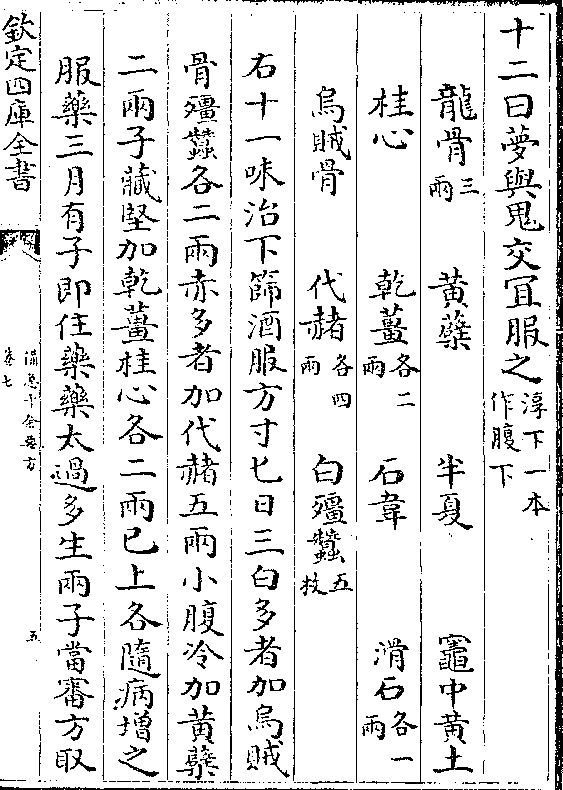 十二曰夢與鬼交宜服之淳下一本作腹下
龍骨三兩 黄蘗 半夏 竈中黄土
桂心 乾薑各二兩 石韋 滑石各一兩
烏賊骨 代赭各四兩 白殭蠶五枚
右十一味治下篩酒服方寸匕日三白多者加烏賊
骨殭蠶各二兩赤多者加代赭五兩小腹冷加黄蘗
二兩子藏堅加乾薑桂心各二兩已上各隨病増之
服藥三月有子即住藥藥太過多生兩子當審方取
欽定四庫全書
卷七
五